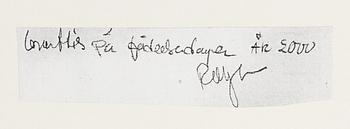 Grattis på födelsedagen År 2000